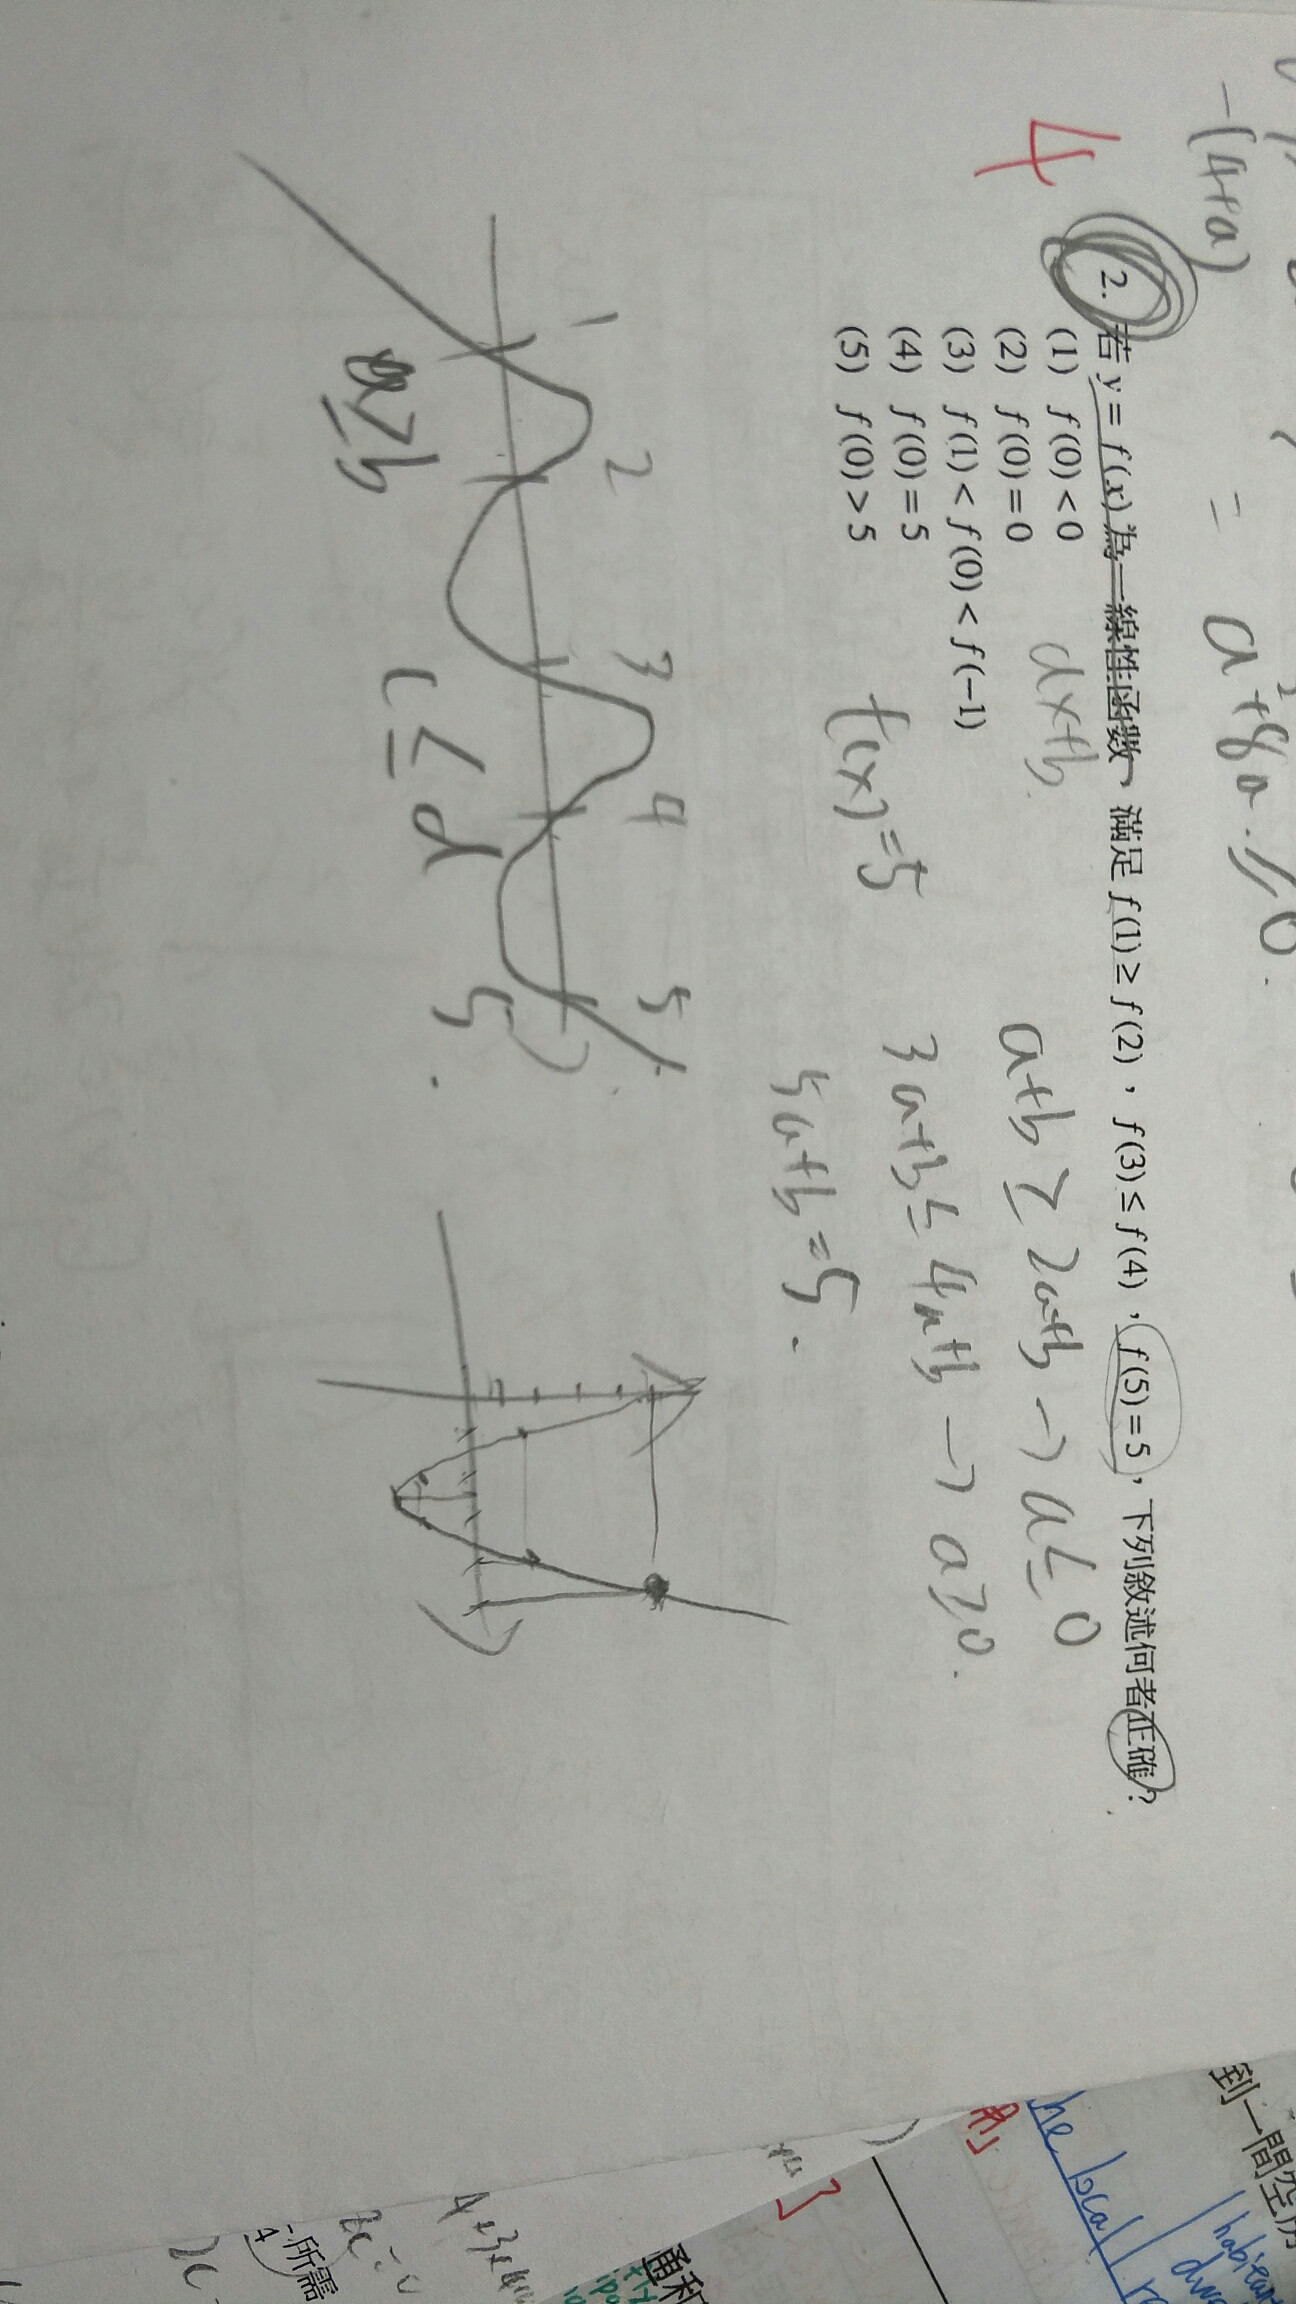 -(4+a)
= a²+8a ≥ 0.
4
2. 若 y = f(x) 為一線性函數，滿足 f(1) ≥ f(2)，f(3) ≤ f(4)，f(5) = 5，下列敘述何者正確？
(1) f(0) < 0
(2) f(0) = 0
(3) f(1) < f(0) < f(-1)
(4) f(0) = 5
(5) f(0) > 5
ax+b.
f(x)=5
a+b ≥ 2a+b → a ≤ 0
3a+b ≤ 4a+b → a ≥ 0.
5a+b=5.
1 2 3 4 5
a ≥ b
c ≤ d
5.
到一間空
he local
habitant
通和
所需